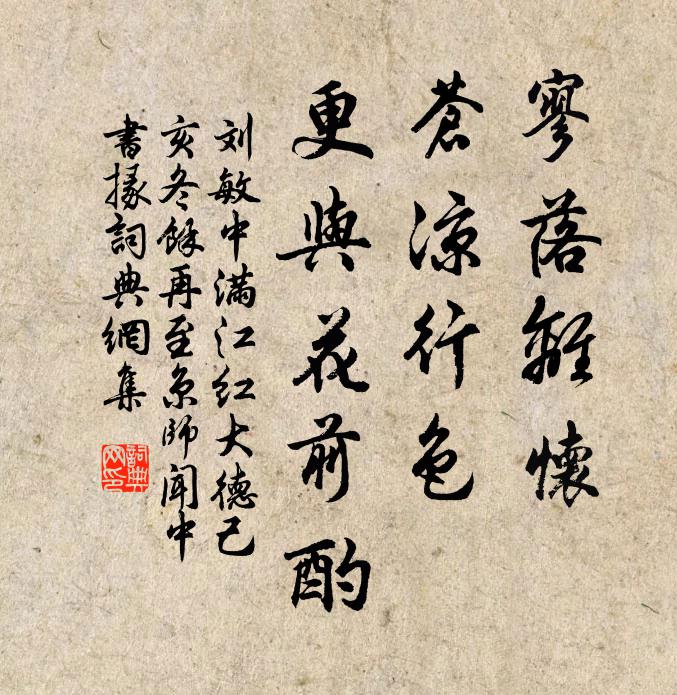 寥落離懷
蒼涼行色
更與花前酌
刘敏中滿江红大德己
亥冬餘再至京師闻中
書掾詞典網集
詞典
网印